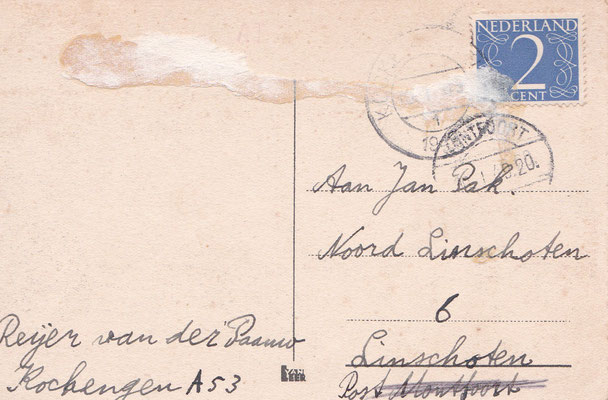 NEDERLAND
2
CENT
MONTFOORT
19
20.
Aan Jan Pak.
Noord Linschoten
6
Linschoten
Post Montfoort
Reijer van der Paauw
Kockengen A53
VAN
LEER